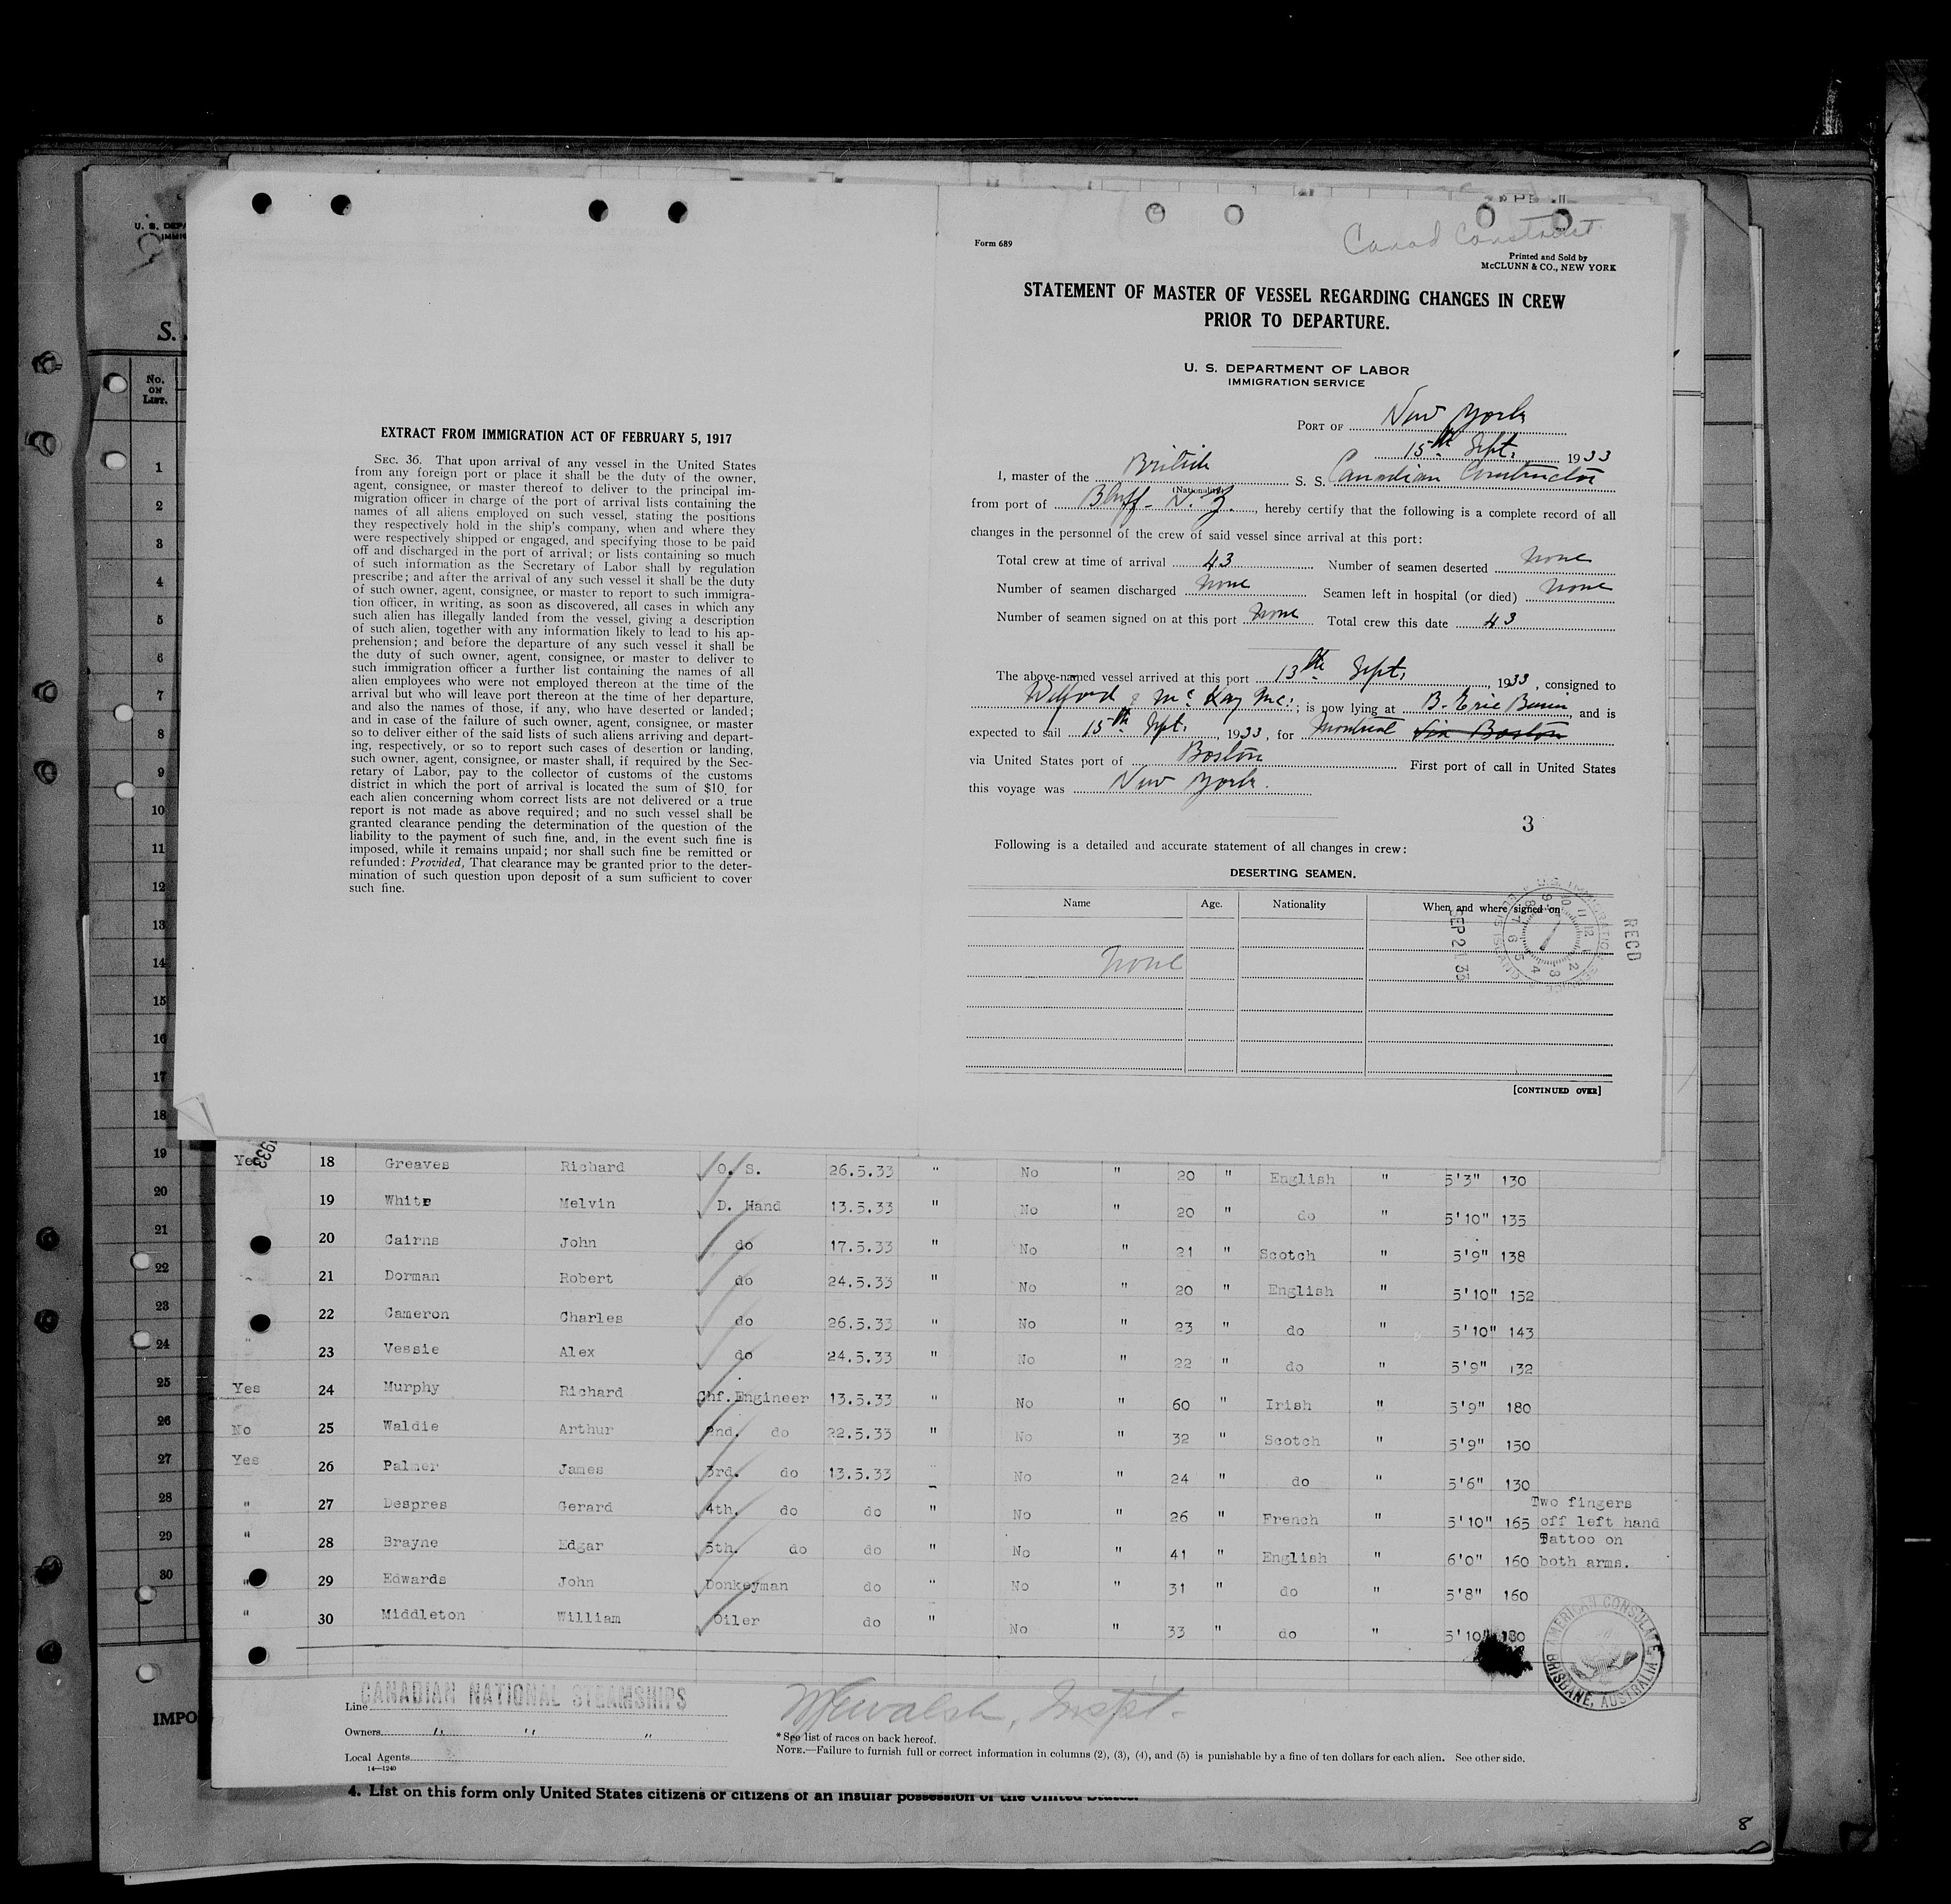 U. S. DEPA
IMMIG
S.
No.
ON
LIST.
1
2
3
4
5
6
7
8
9
10
11
12
13
14
15
16
17
18
19
20
21
22
23
24
25
26
27
28
29
30
IMPO
EXTRACT FROM IMMIGRATION ACT OF FEBRUARY 5, 1917
SEC. 36. That upon arrival of any vessel in the United States
from any foreign port or place it shall be the duty of the owner,
agent, consignee, or master thereof to deliver to the principal im-
migration officer in charge of the port of arrival lists containing the
names of all aliens employed on such vessel, stating the positions
they respectively hold in the ship's company, when and where they
were respectively shipped or engaged, and specifying those to be paid
off and discharged in the port of arrival; or lists containing so much
of such information as the Secretary of Labor shall by regulation
prescribe; and after the arrival of any such vessel it shall be the duty
of such owner, agent, consignee, or master to report to such immigra-
tion officer, in writing, as soon as discovered, all cases in which any
such alien has illegally landed from the vessel, giving a description
of such alien, together with any information likely to lead to his ap-
prehension; and before the departure of any such vessel it shall be
the duty of such owner, agent, consignee, or master to deliver to
such immigration officer a further list containing the names of all
alien employees who were not employed thereon at the time of the
arrival but who will leave port thereon at the time of her departure,
and also the names of those, if any, who have deserted or landed;
and in case of the failure of such owner, agent, consignee, or master
so to deliver either of the said lists of such aliens arriving and depart-
ing, respectively, or so to report such cases of desertion or landing,
such owner, agent, consignee, or master shall, if required by the Sec-
retary of Labor, pay to the collector of customs of the customs
district in which the port of arrival is located the sum of $10 for
each alien concerning whom correct lists are not delivered or a true
report is not made as above required; and no such vessel shall be
granted clearance pending the determination of the question of the
liability to the payment of such fine, and, in the event such fine is
imposed, while it remains unpaid; nor shall such fine be remitted or
refunded: Provided, That clearance may be granted prior to the deter-
mination of such question upon deposit of a sum sufficient to cover
such fine.
Form 689
Canad Construct
Printed and Sold by
McCLUNN & CO., NEW YORK
STATEMENT OF MASTER OF VESSEL REGARDING CHANGES IN CREW
PRIOR TO DEPARTURE.
U. S. DEPARTMENT OF LABOR
IMMIGRATION SERVICE
PORT OF New York
15th Sept. 1933
I, master of the British S. S. Canadian Constructor
(Nationality)
from port of Bluff - N. Z., hereby certify that the following is a complete record of all
changes in the personnel of the crew of said vessel since arrival at this port:
Total crew at time of arrival 43 Number of seamen deserted None
Number of seamen discharged None Seamen left in hospital (or died) None
Number of seamen signed on at this port None Total crew this date 43
The above-named vessel arrived at this port 13th Sept. 1933, consigned to
& Mc Kay Inc.; is now lying at B. Erie Basin, and is
expected to sail 15th Sept. 1933, for Montreal via Boston
via United States port of Boston First port of call in United States
this voyage was New York.
3
Following is a detailed and accurate statement of all changes in crew:
DESERTING SEAMEN.
Name Age. Nationality When and where signed on
None
RECD
SEP 21 33
[CONTINUED OVER]
1933
Yes 18 Greaves Richard O. S. 26.5.33 " No " 20 " English " 5'3" 130
19 White Melvin D. Hand 13.5.33 " No " 20 " do " 5'10" 135
20 Cairns John do 17.5.33 " No " 21 " Scotch " 5'9" 138
21 Dorman Robert do 24.5.33 " No " 20 " English " 5'10" 152
22 Cameron Charles do 26.5.33 " No " 23 " do " 5'10" 143
" 23 Vessie Alex do 24.5.33 " No " 22 " do " 5'9" 132
Yes 24 Murphy Richard Chf.Engineer 13.5.33 " No " 60 " Irish " 5'9" 180
No 25 Waldie Arthur 2nd. do 22.5.33 " No " 32 " Scotch " 5'9" 150
Yes 26 Palmer James 3rd. do 13.5.33 " No " 24 " do " 5'6" 130
" 27 Despres Gerard 4th. do do " No " 26 " French " 5'10" 165 Two fingers off left hand
" 28 Brayne Edgar 5th. do do " No " 41 " English " 6'0" 160 Tattoo on both arms.
" 29 Edwards John Donkeyman do " No " 31 " do " 5'8" 160
" 30 Middleton William Oiler do " No " 33 " do " 5'10" 180
AMERICAN CONSULATE
BRISBANE, AUSTRALIA
Line CANADIAN NATIONAL STEAMSHIPS
Owners " " "
Local Agents
14—1240
Walsh, Inspt.
* See list of races on back hereof.
NOTE.—Failure to furnish full or correct information in columns (2), (3), (4), and (5) is punishable by a fine of ten dollars for each alien. See other side.
4. List on this form only United States citizens or citizens of an insular possession of the United States.
8